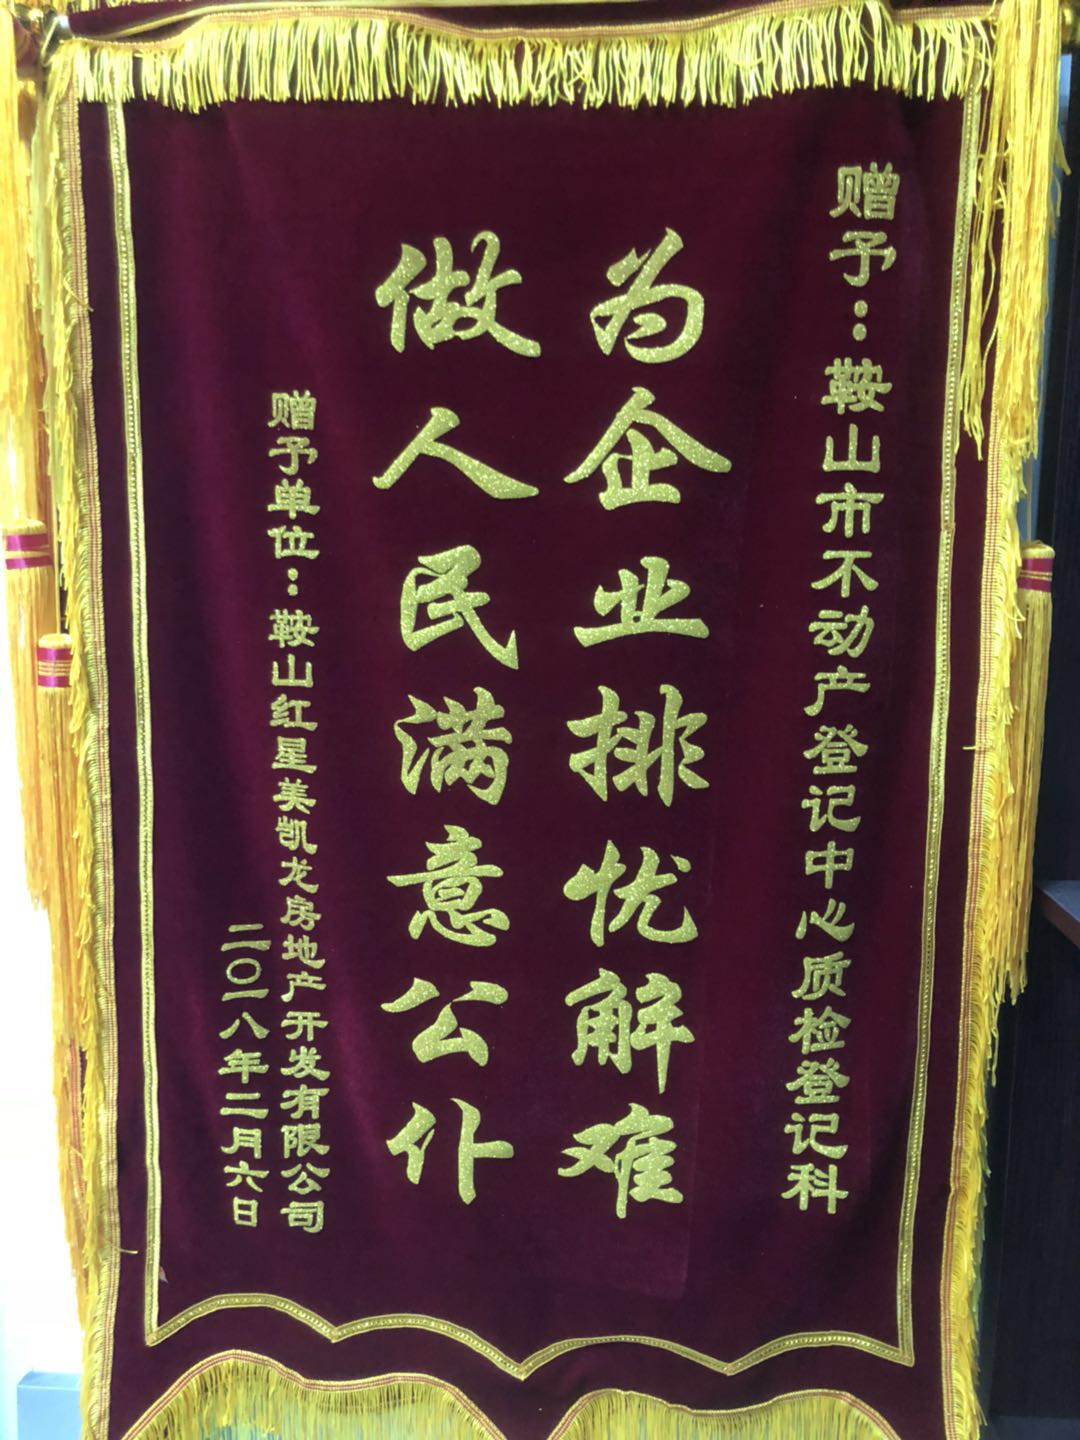 赠予：鞍山市不动产登记中心质检登记科
为企业排忧解难
做人民满意公仆
赠予单位：鞍山红星美凯龙房地产开发有限公司
二〇一八年二月六日